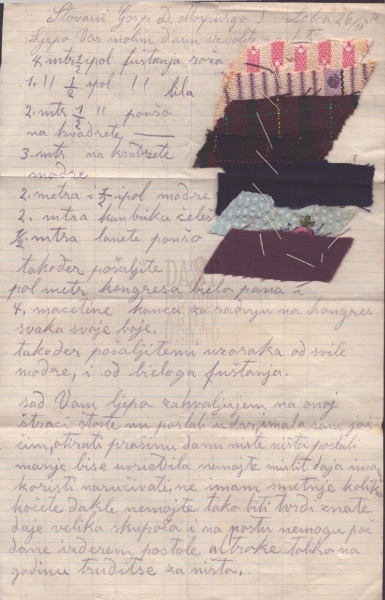 Štovani Gosp. D. Mojmirgo 3 Selca 26/
Ljepa Vas molim dami izvolite
4. mtr. 1/2 ipol fuštanja roža
1. " 1/2 ipol " bila
2. mtr 1/2 " ponso
na kvadrete
3. mtr na kvadrete
modre
2. metra i 1/2 ipol modre
2. mtra kambuka čeles
1/2 mtra lanete ponšo
također pošaljite
pol metr kongresa biela pana i
4. macetine konca za radnju na kongres
svaka svoje boje.
također pošaljitemi uzoraka od svile
modre, i od bieloga fuštanja.
sad Vam ljepa zahvaljujem na onoj
štraci stoste mi poslali udar, imala sam još
čim, otirati prašinu dami niste ništa poslali
manje bise uvriedila nemojte mislit daja imam
koristi naručivati, ne imam smetnje koliko
hoćete dakle nemojte tako biti tvrdi znate
daje velika skupoća i na poštu nemogu poć
dane izderem postole al troke toliko na
godinu truditse za ništa.